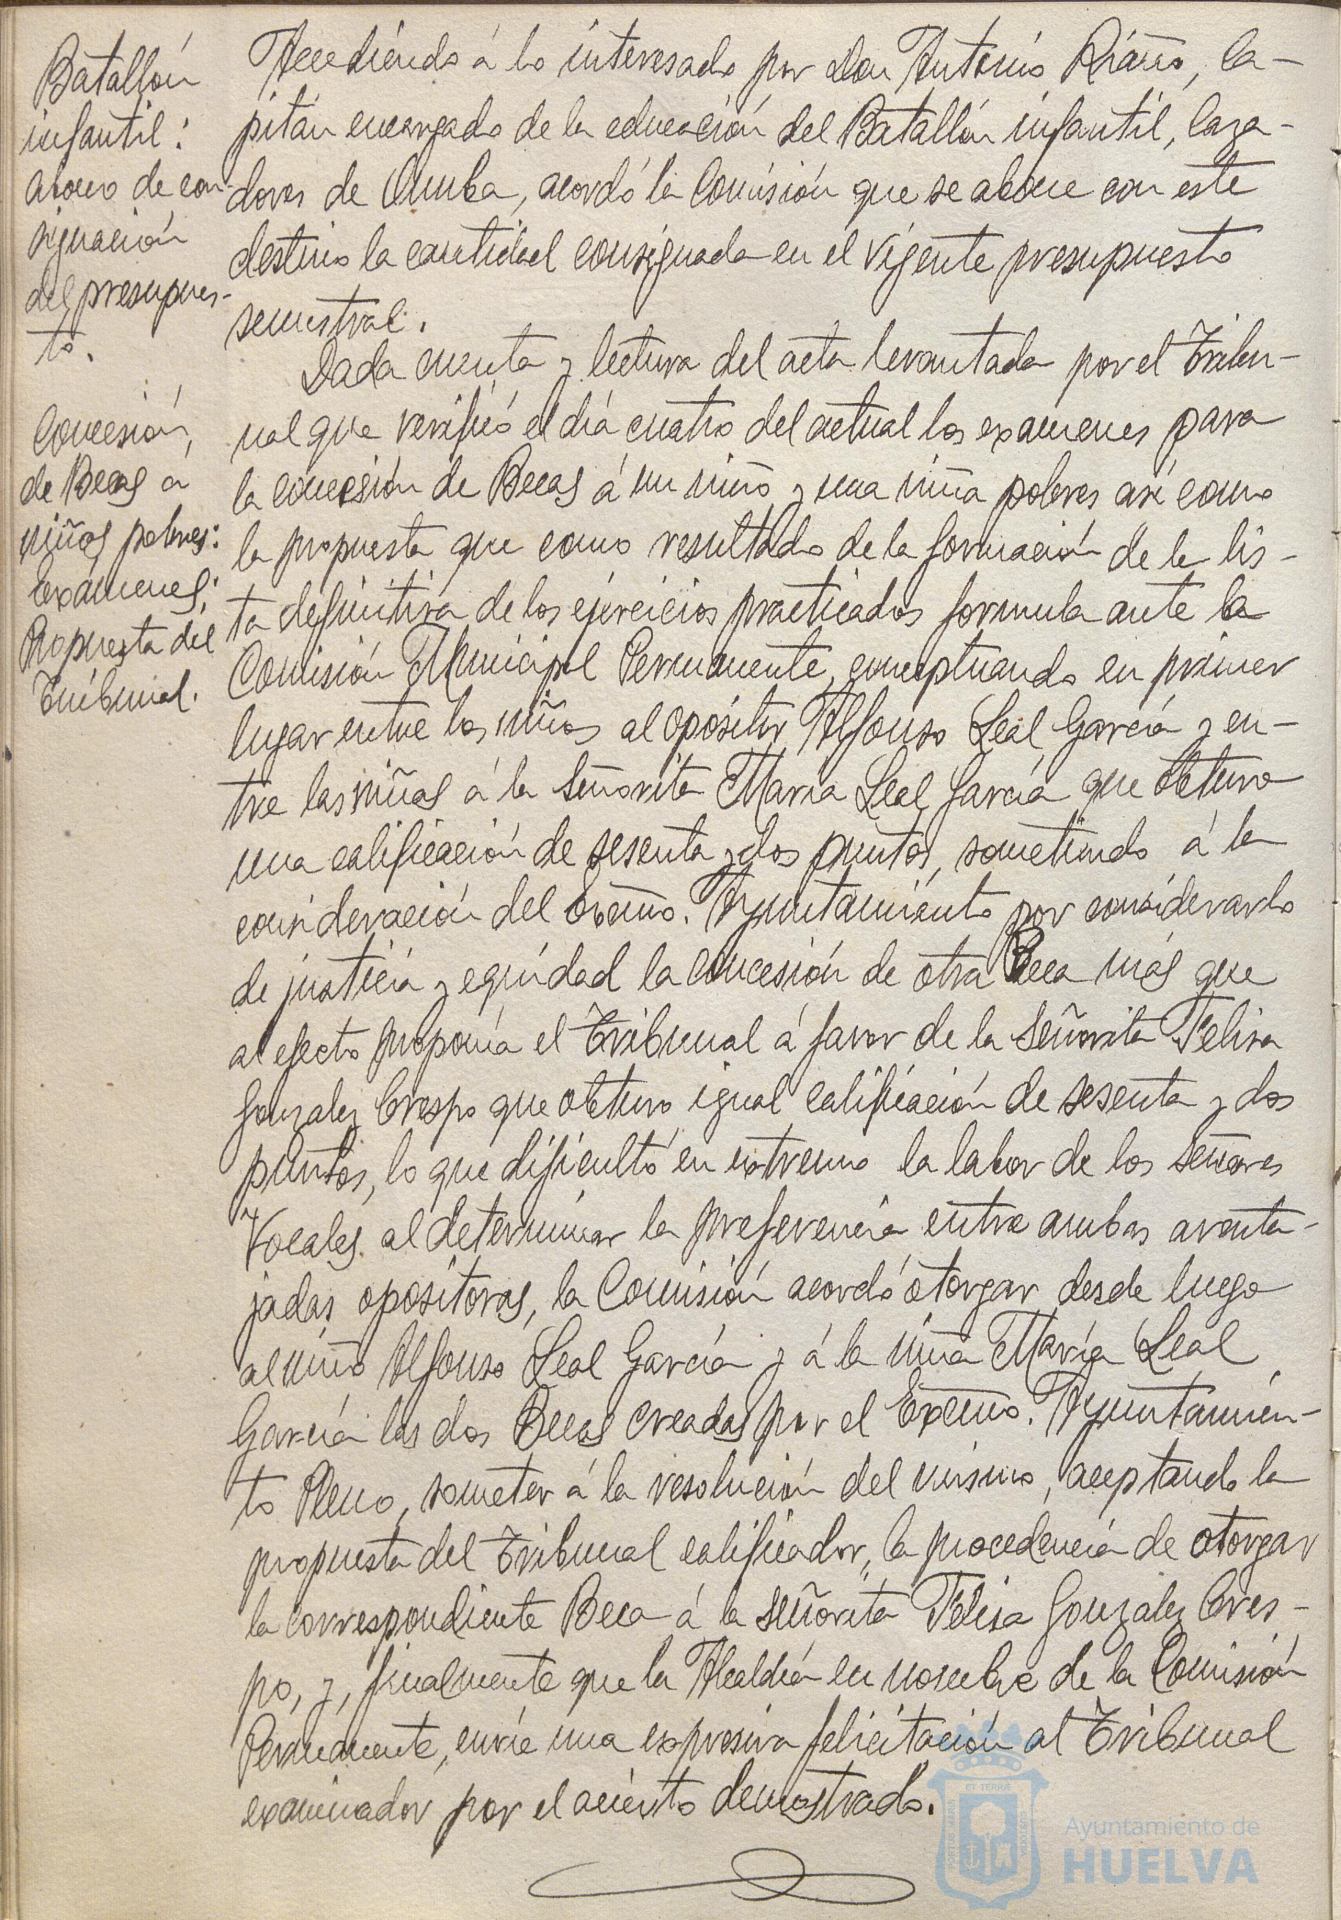 Batallón
infantil:
abono de con-
signación
del presupues-
to.
Accediendo á lo interesado por Don Antonio Riaño, Ca-
pitán encargado de la educación del Batallón infantil, Caza-
dores de Onuba, acordó la Comisión que se abone con este
destino la cantidad consignada en el vigente presupuesto
semestral.
Concesión
de Becas á
niños pobres:
Exámenes:
Propuesta del
Tribunal.
Dada cuenta y lectura del acta levantada por el Tribu-
nal que verificó el día cuatro del actual los exámenes para
la concesión de Becas á un niño y una niña pobres así como
la propuesta que como resultado de la formación de la lis-
ta definitiva de los ejercicios practicados formula ante la
Comisión Municipal Permanente, conceptuando en primer
lugar entre los niños al opositor Alfonso Leal García y en-
tre las niñas á la Señorita María Leal García que obtuvo
una calificación de sesenta y dos puntos, sometiendo á la
consideración del Excmo. Ayuntamiento por considerarlo
de justicia y equidad la concesión de otra Beca más que
al efecto proponía el Tribunal á favor de la Señorita Felisa
Gonzalez Crespo que obtuvo igual calificación de sesenta y dos
puntos, lo que dificultó en extremo la labor de los señores
Vocales al determinar la preferencia entre ambas aventa-
jadas opositoras, la Comisión acordó otorgar desde luego
al niño Alfonso Leal García y á la niña María Leal
García las dos Becas creadas por el Excmo. Ayuntamien-
to Pleno, someter á la resolución del mismo, aceptando la
propuesta del Tribunal calificador, la procedencia de otorgar
la correspondiente Beca á la señorita Felisa Gonzalez Cres-
po, y, finalmente que la Alcaldía en nombre de la Comisión
Permanente, envíe una expresiva felicitación al Tribunal
examinador por el acierto demostrado.
ET TERRAE
Ayuntamiento de
HUELVA